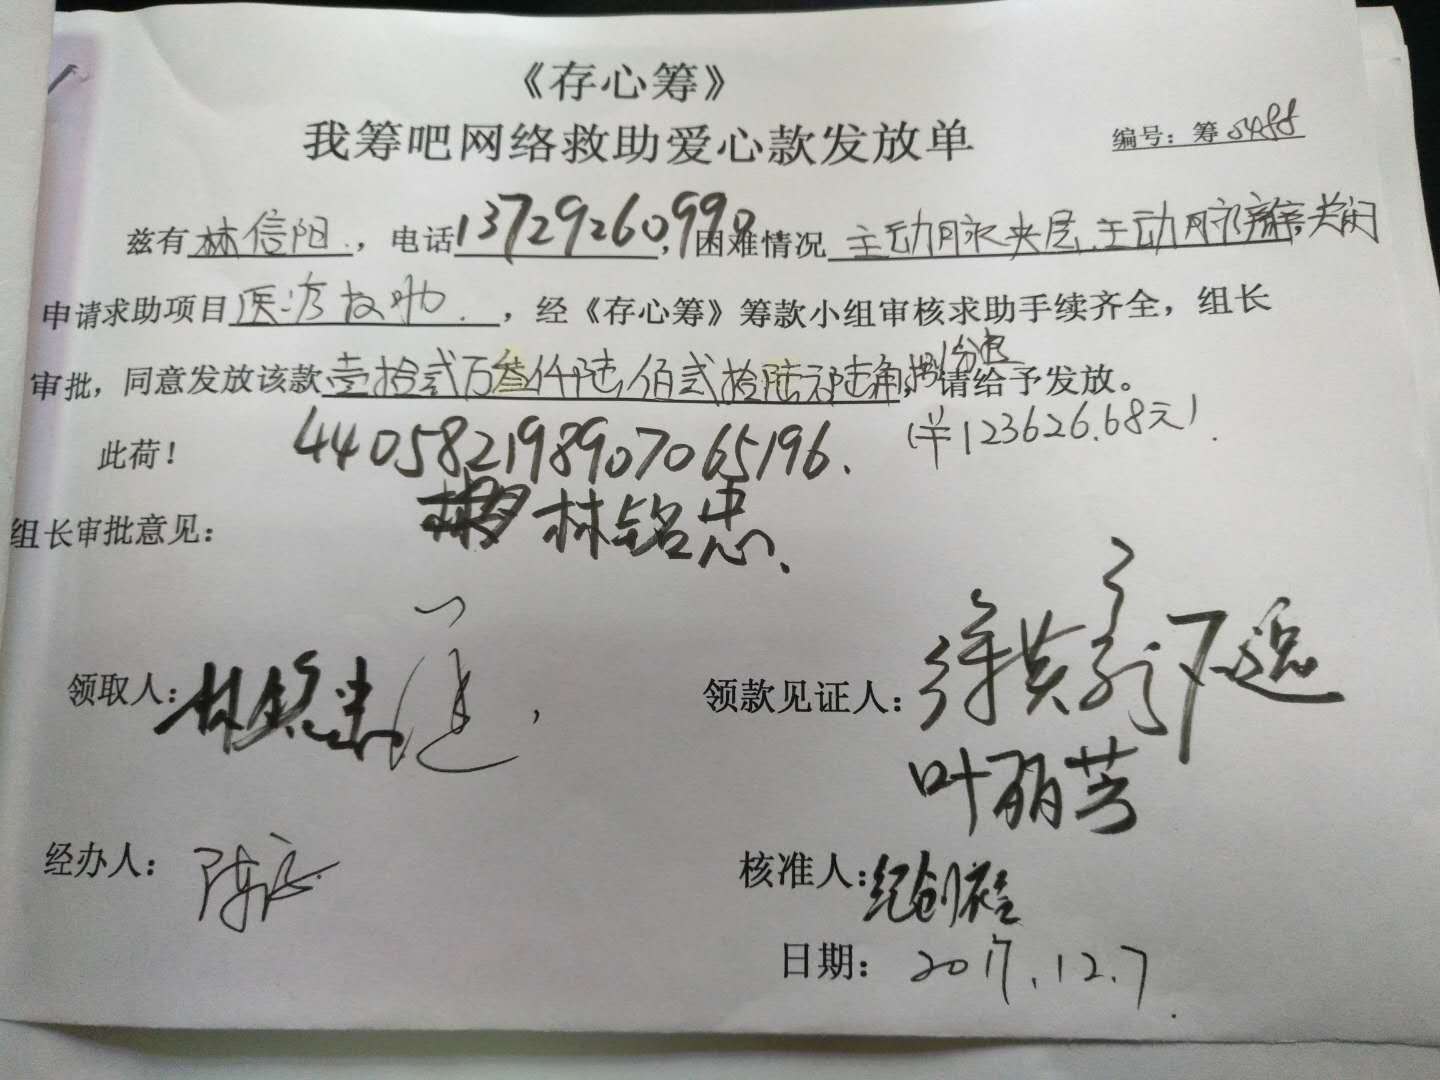 《存心筹》
我筹吧网络救助爱心款发放单
编号：筹5488
兹有林信阳，电话13729260990，困难情况主动脉夹层.主动脉瓣关闭
申请求助项目医疗救助，经《存心筹》筹款小组审核求助手续齐全，组长
审批，同意发放该款壹拾贰万叁仟陆佰贰拾陆元陆角捌分，请给予发放。
此荷！ 440582198907065196. (￥123626.68元).
组长审批意见： 林铭忠
领取人： 领款见证人：
叶丽芸
经办人：陈 核准人：纪创
日期：2017.12.7